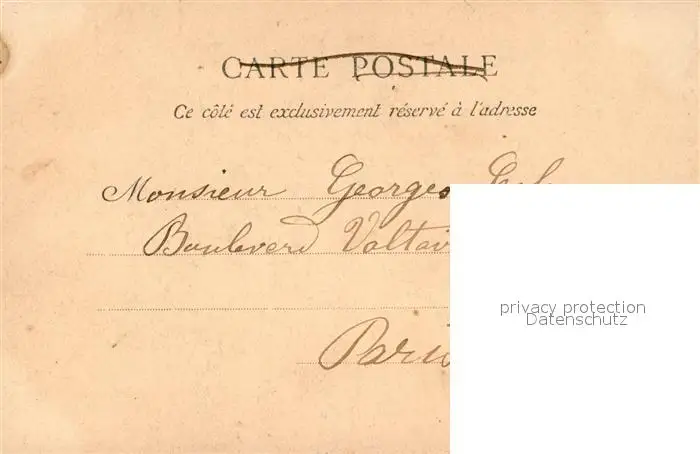 CARTE POSTALE
Ce côté est exclusivement réservé à l'adresse
Monsieur Georges
Boulevard
Paris
privacy protection
Datenschutz